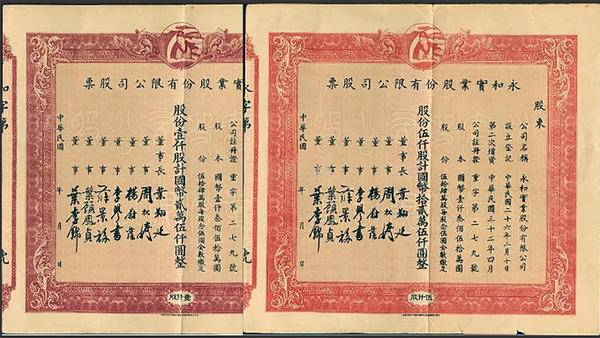 永和實業股份有限公司股票
股東
公司名稱 永和實業股份有限公司
設立登記 中華民國二十六年二月十日
第二次增資 中華民國三十二年四月
公司註冊證 重字第二七九號
股本 國幣壹仟叁佰伍拾萬圓
股份 伍拾肆萬股每股念伍圓全數繳足
股份伍仟股計國幣拾貳萬伍仟圓整
董事長 葉
董事 周松
董事 楊
董事 李 書
董事 景
董事 葉 鳳貞
董事 葉季錦
中華民國 年 月
伍仟股
永字第 號
實業股份有限公司股票
公司註冊證 重字第二七九號
股本 國幣壹仟叁佰伍拾萬圓
股份 伍拾肆萬股每股念伍圓全數繳足
股份壹仟股計國幣貳萬伍仟圓整
董事長 葉
董事 周松
董事 楊
董事 李 書
董事 景
董事 葉 鳳貞
董事 葉季錦
中華民國 年 月
壹仟股
和字第 號